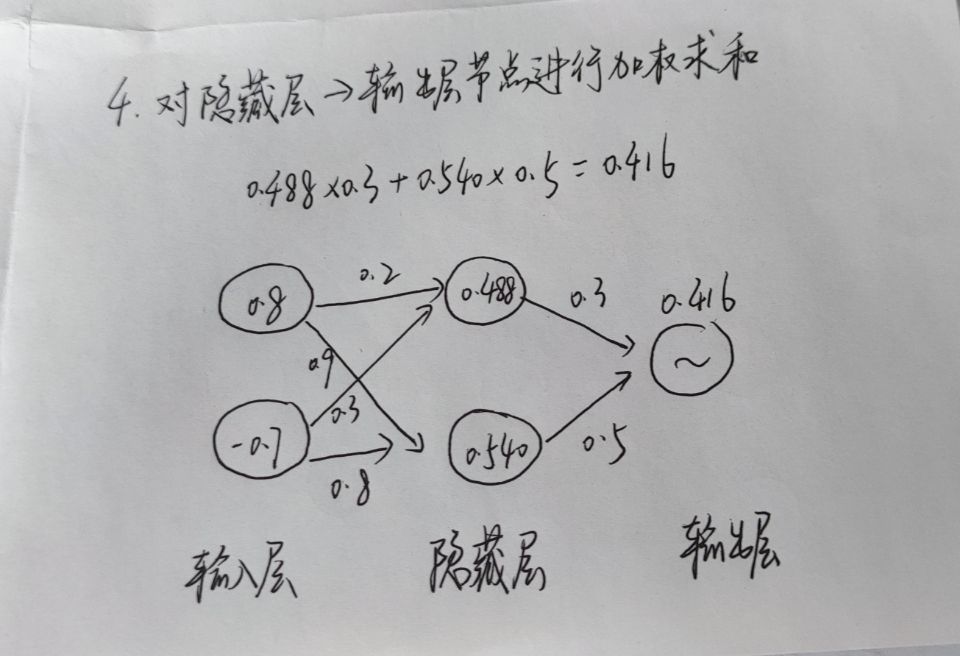 4. 对隐藏层→输出层节点进行加权求和
0.488×0.3+0.540×0.5=0.416
0.8
0.2
0.488
0.3
0.416
~
0.9
-0.7
0.3
0.8
0.540
0.5
输入层
隐藏层
输出层